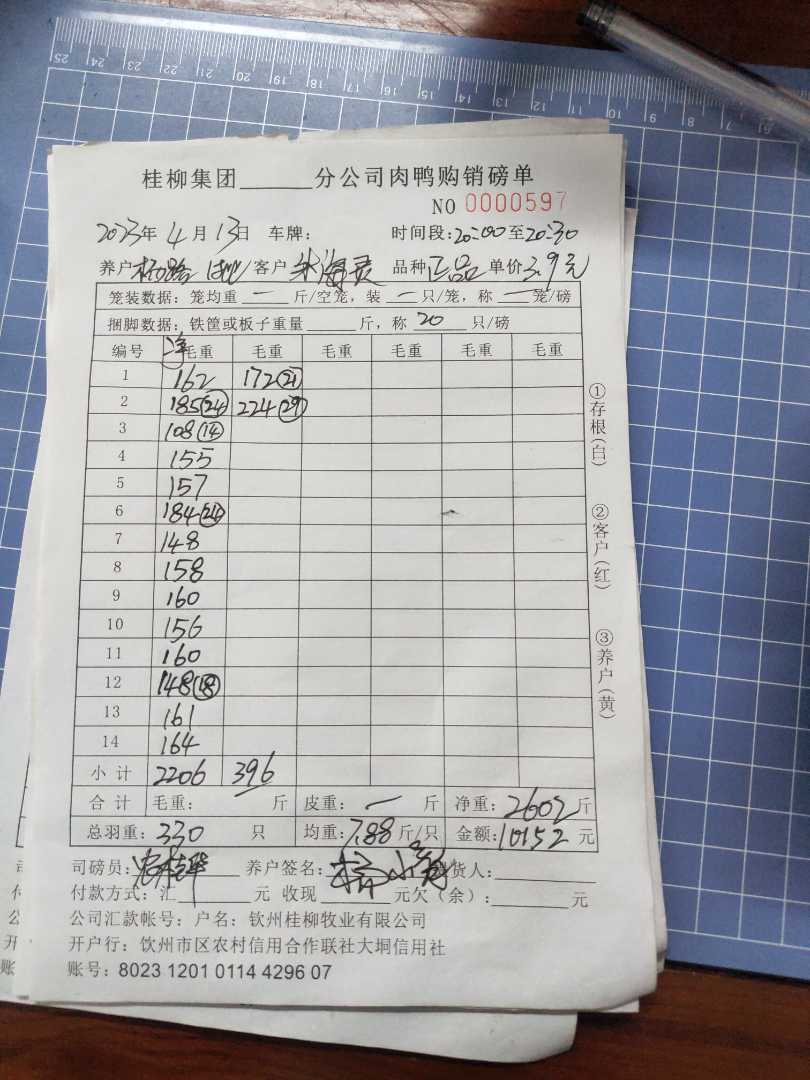 25 24 23 22 21 20 19 18 17 16 15 14 13 12 11 10 9 8 7 6
桂柳集团______分公司肉鸭购销磅单
NO 0000597
2023年4月13日 车牌: 时间段:20:00至20:30
养户 客户 品种正品 单价3.9元
笼装数据: 笼均重 一 斤/空笼, 装 一 只/笼, 称 一 笼/磅
捆脚数据: 铁筐或板子重量______斤, 称 20 只/磅
编号 净毛重 毛重 毛重 毛重 毛重 毛重
1 162 172(21)
2 185(24) 224(29)
3 108(14)
4 155
5 157
6 184(24)
7 148
8 158
9 160
10 156
11 160
12 148(18)
13 161
14 164
小计 2206 396
合计 毛重: 斤 皮重: 一 斤 净重: 2602斤
总羽重: 330 只 均重: 7.88斤/只 金额: 10152元
司磅员: 养户签名: 货人:
付款方式: 汇______元 收现______元欠(余):______元
公司汇款帐号: 户名: 钦州桂柳牧业有限公司
开户行: 饮州市区农村信用合作联社大垌信用社
账号: 8023 1201 0114 4296 07
①存根(白)
②客户(红)
③养户(黄)
司
付
公
开
账